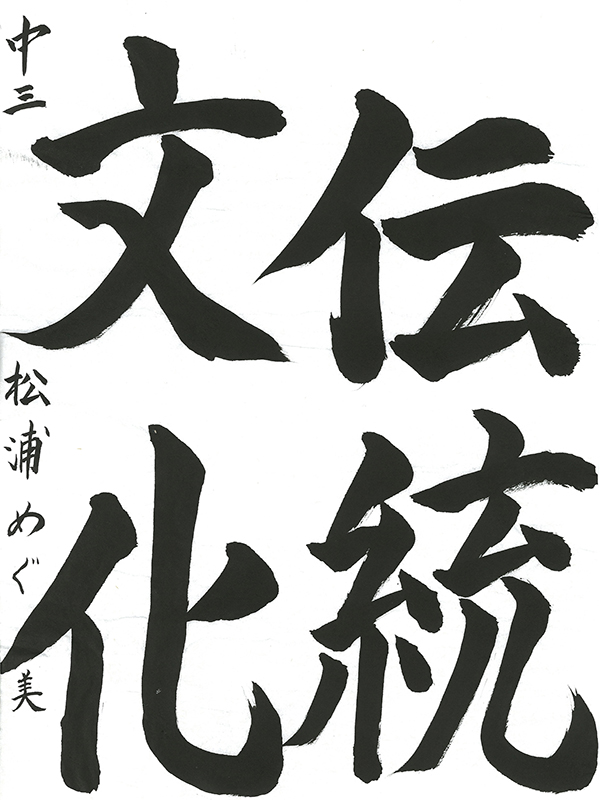 伝統
文化
中三 松浦めぐ美